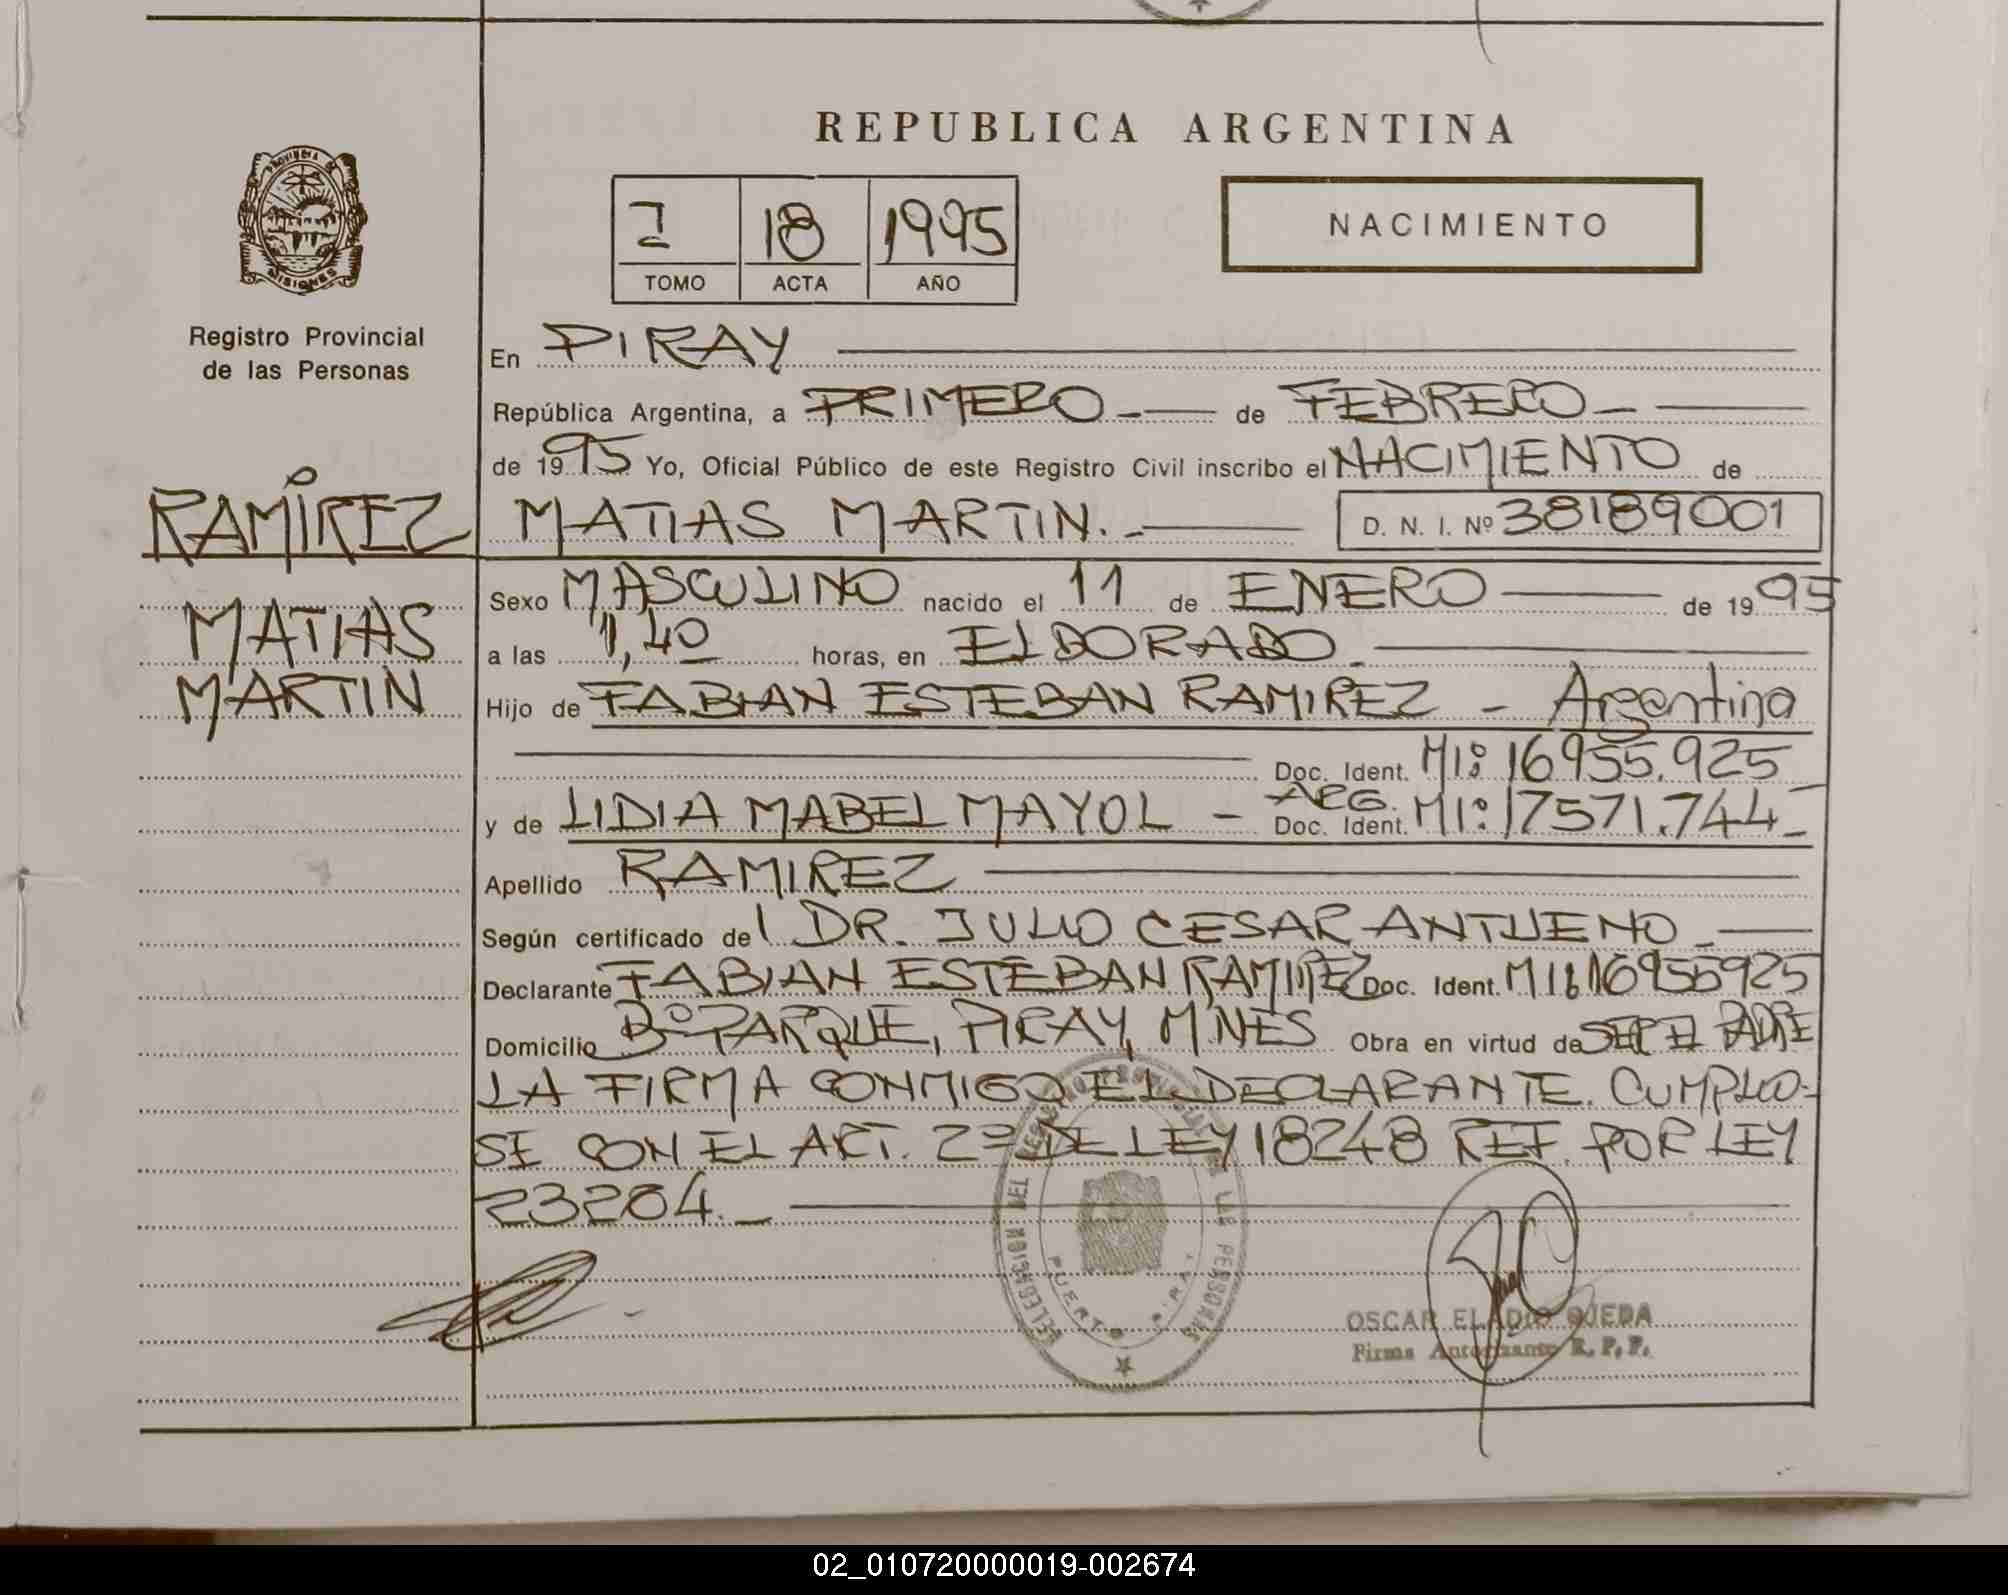 REPUBLICA ARGENTINA
PROVINCIA DE
MISIONES
Registro Provincial
de las Personas
I 18 1995
TOMO ACTA AÑO
NACIMIENTO
En PIRAY
República Argentina, a PRIMERO de FEBRERO
de 1995 Yo, Oficial Público de este Registro Civil inscribo el NACIMIENTO de
RAMÍREZ
MATIAS MARTIN. D. N. I. Nº 38189001
MATIAS
MARTIN
Sexo MASCULINO nacido el 11 de ENERO de 1995
a las 1,40 horas, en ELDORADO
Hijo de FABIAN ESTEBAN RAMIREZ - Argentina
Doc. Ident. MI: 16955.925
y de LIDIA MABEL MAYOL - ARG. Doc. Ident. MI: 17571.744
Apellido RAMIREZ
Según certificado del DR. JULIO CESAR ANTUENO
Declarante FABIAN ESTEBAN RAMIREZ Doc. Ident. MI: 16955925
Domicilio Bº PARQUE, PIRAY, MNES Obra en virtud de SER EL PADRE
LA FIRMA CONMIGO EL DECLARANTE. CUMPLIO-
SE CON EL ART. 2º DE LEY 18248 REF. POR LEY
23264.
DELEGACION DEL REGISTRO PROVINCIAL DE LAS PERSONAS
PUERTO PIRAY
OSCAR ELADIO OJEDA
Firma Autorizante R. P. P.
02_010720000019-002674